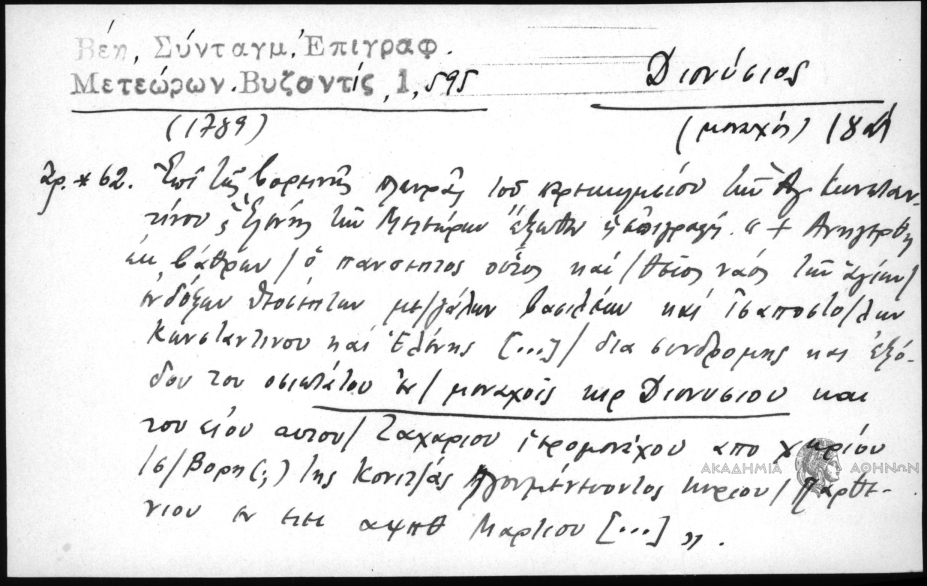 Βέη, Σύνταγμ. Ἐπιγραφ.
Μετεώρων. Βυζαντίς, 1, 595
Διονύσιος
(1789)
(μοναχός)
ἀρ. * 62. Ἐπὶ τῆς βορεινῆς πλευρᾶς τοῦ τῶν Ἁγ. Κωνσταν-
τίνου ς Ἑλένης τῶν Μετεώρων ἔξωθεν ἡ ἐπιγραφή. " + Ανηγερθη
ἐκ βάθρων / ὁ πανσεπτος οὗτος καί / θεῖος ναὸς τῶν ἁγίων /
ἐνδόξων θεοστέπτων με/γάλων βασιλέων καί ἰσαποστό/λων
Κωνσταντινου καί Ἑλένης [...] / δια συνδρομης και ἐξό-
δου του οσιωτάτου ἐν / μοναχοῖς κυρ Διονυσιου και
του υἱου αυτου / Ζαχαριου ἱερομονάχου απο χωρίου
/σ/βορη(;) της Κονιτ/άς ηγουμένευοντος κυριου / Παρθε-
νιου εν ετει αψπθ Μαρτιου [...] ".
ΑΚΑΔΗΜΙΑ ΑΘΗΝΩΝ